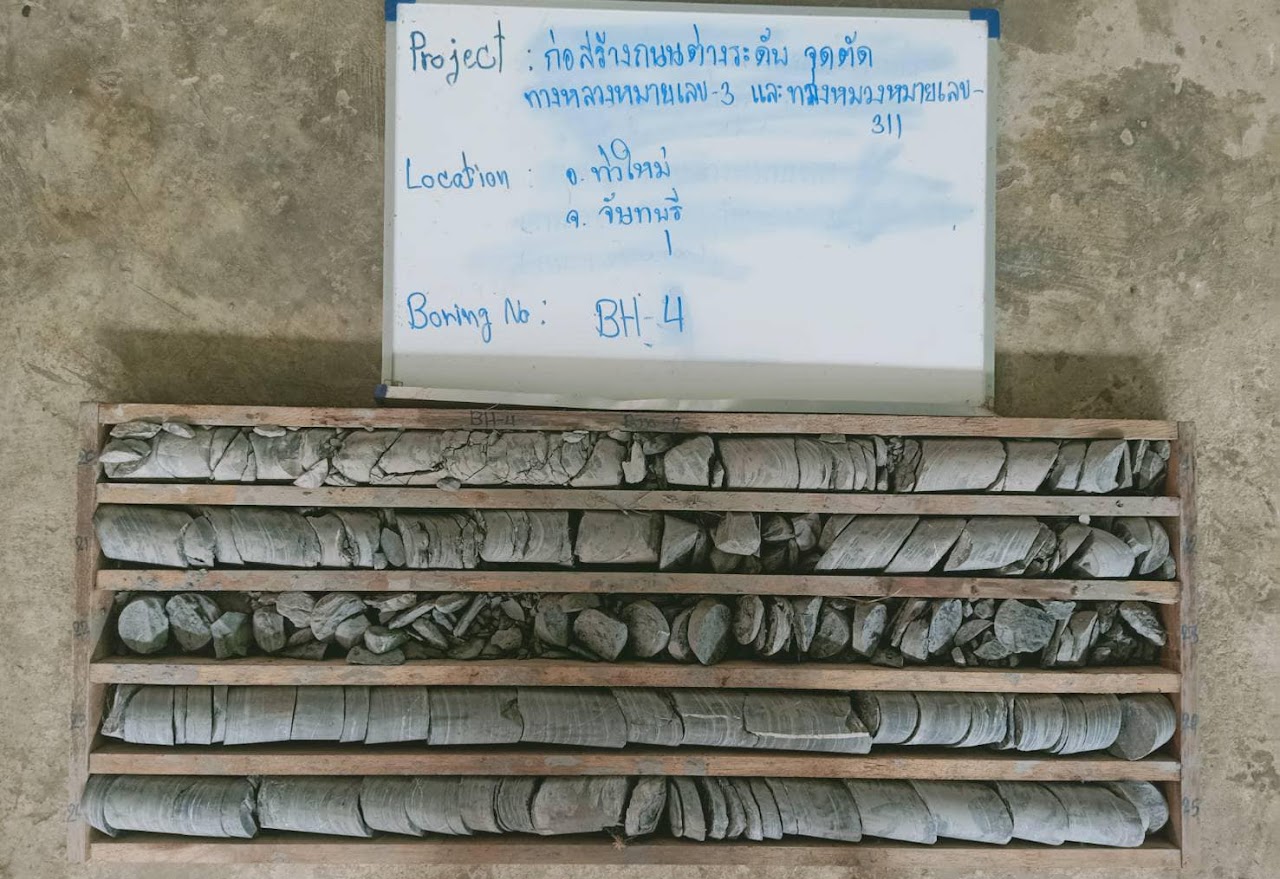 Project : ก่อสร้างถนนต่างระดับ จุดตัด
ทางหลวงหมายเลข-3 และทางหลวงหมายเลข-
311
Location : อ. ท่าใหม่
จ. จันทบุรี
Boring No : BH-4
BH-4
20
21
22
23
23
24
25